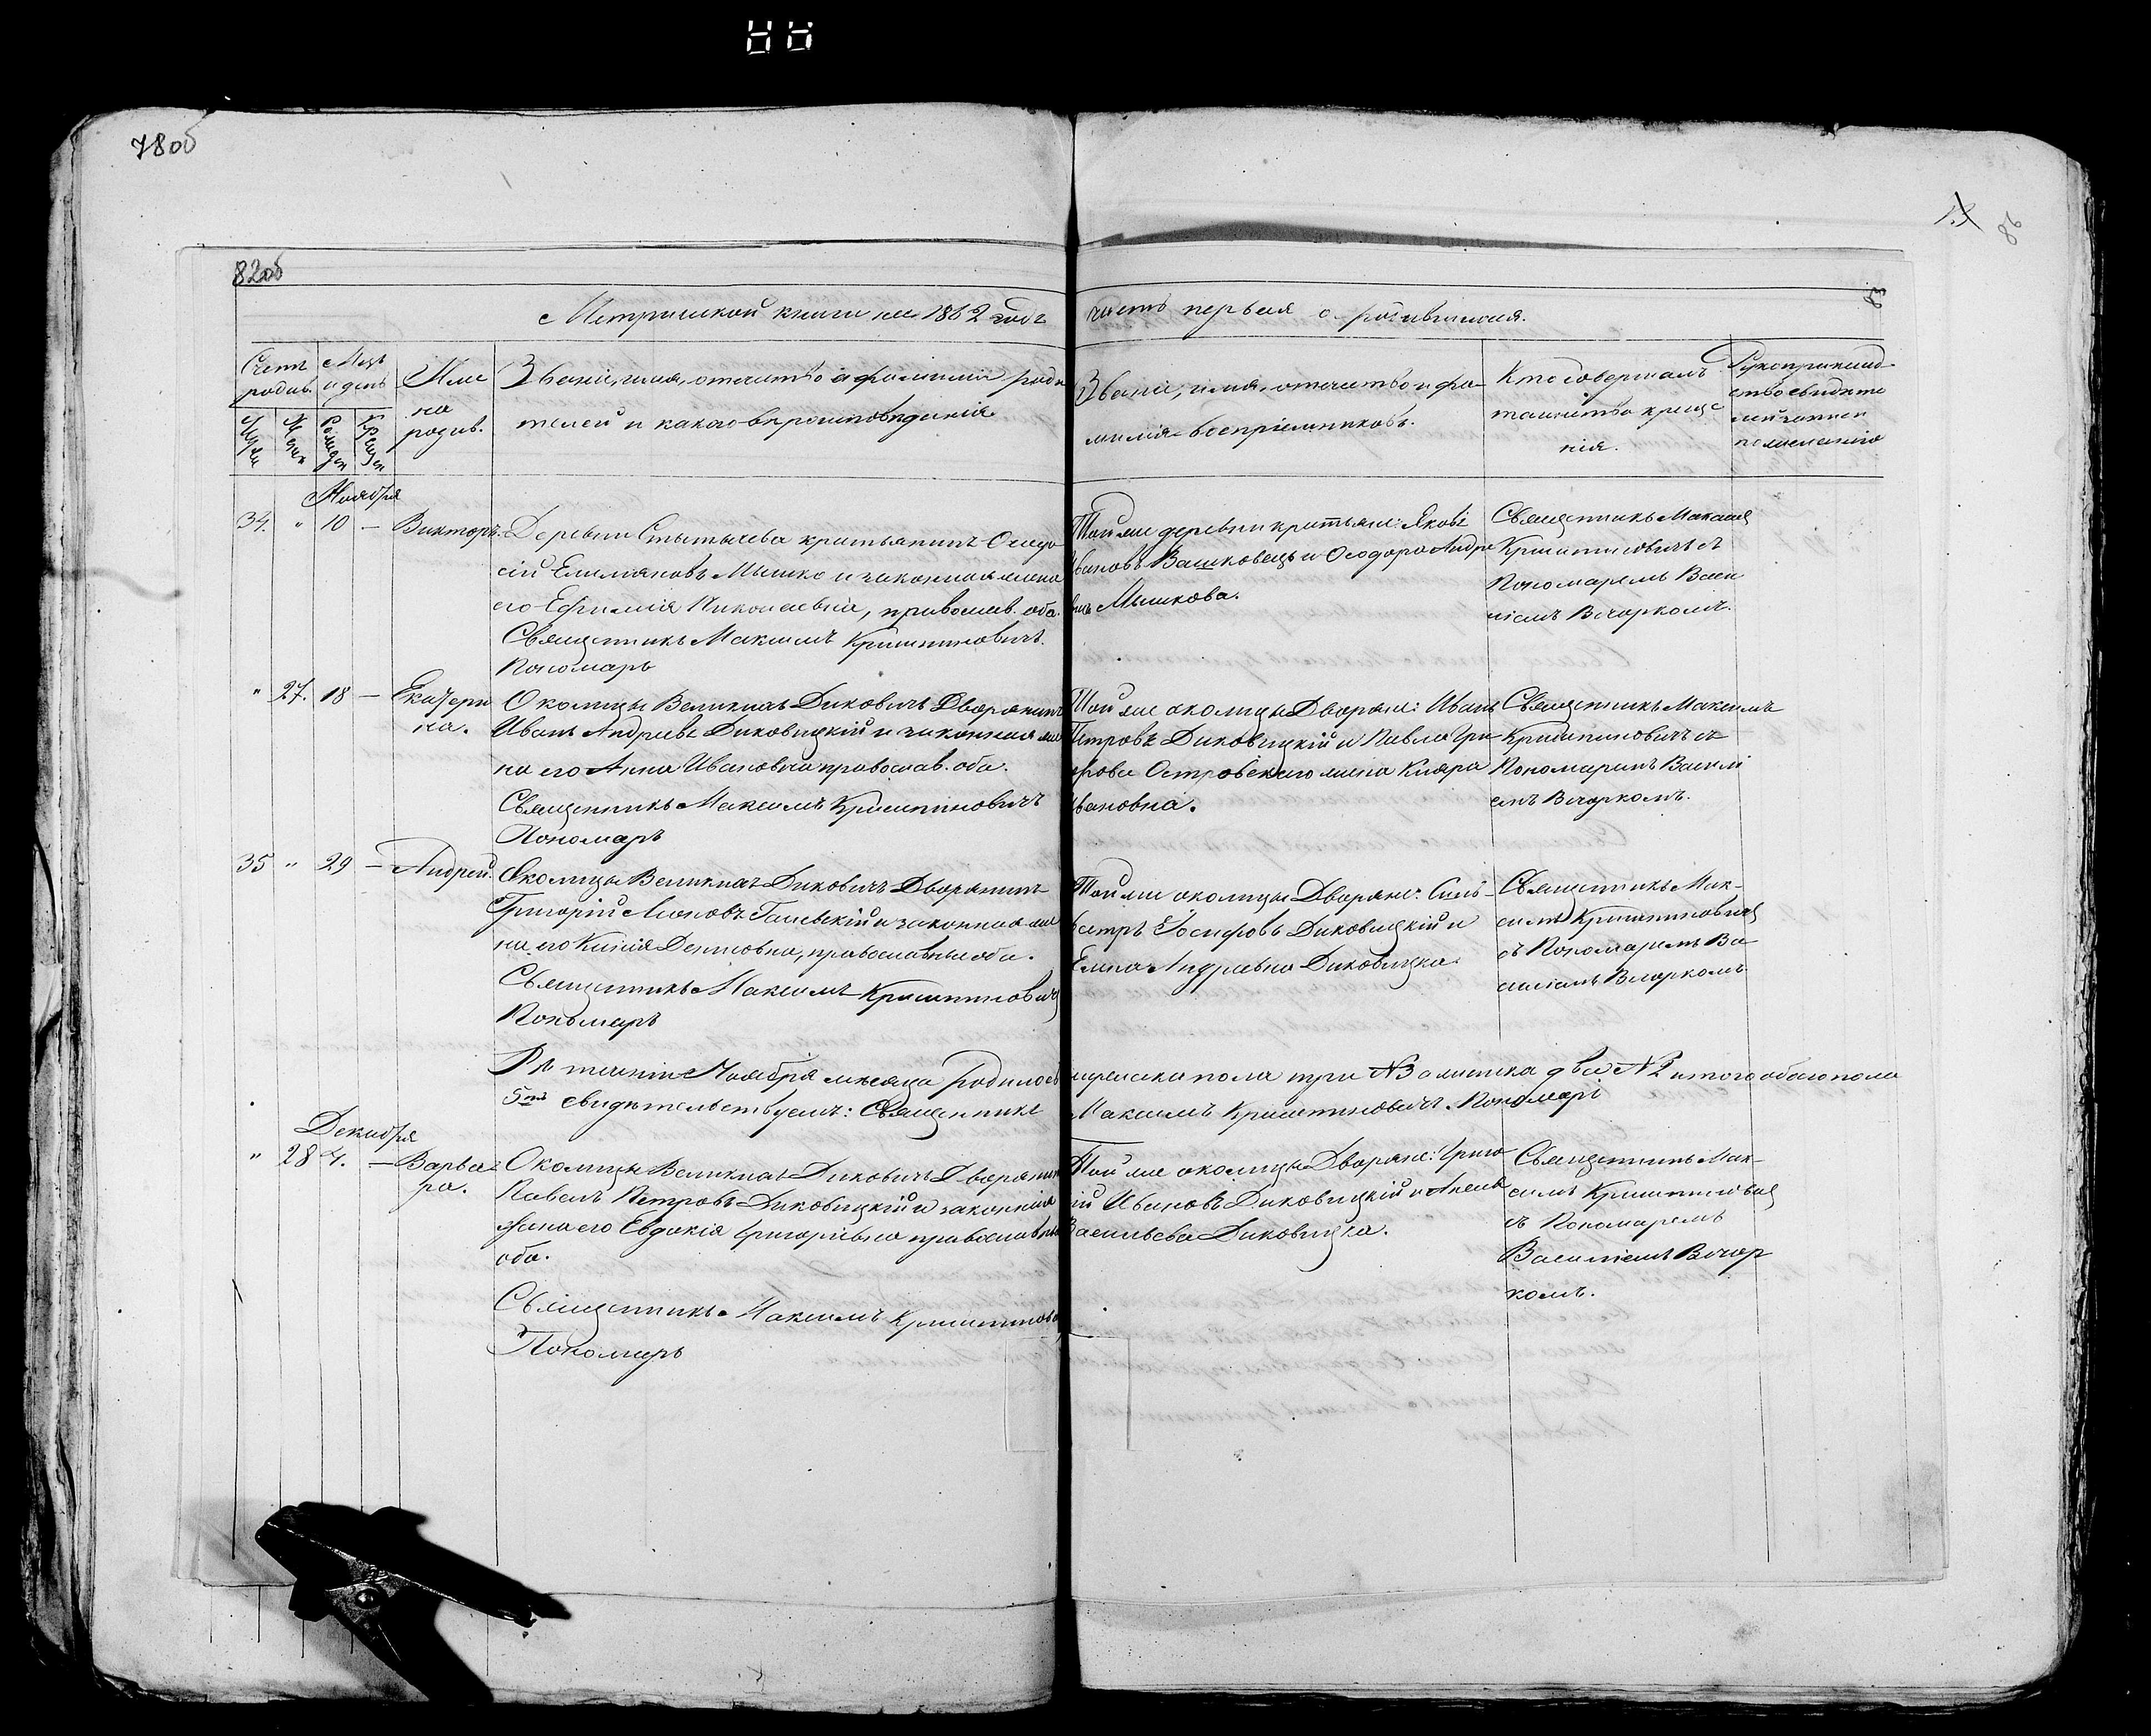 78об
82об
83
Метрической книги на 1862 годъ
часть первая о родившихся.
Счетъ родив.
Мцъ и день
Имена родив.
Званіе, имя, отчество и фамилія роди
телей и какого вѣроисповѣданія
Званіе, имя, отчество и фа-
милія воспріемниковъ.
Кто совершалъ
таинство креще
нія.
Рукоприклад
ство свидѣте
лей записи
по желанію
Ноября
34. " 10 — Викторъ.
Деревни Стытычева крестьянинъ Ѳеодо
сій Емиліяновъ Мышко и законная жена
его Ефимія Николаевна, православ. оба.
Священникъ Максимъ Криштиновичъ.
Пономарь
Той же деревни крестьяне: Яковъ
Ивановъ Вашковецъ и Ѳеодора Андре
Мышкова.
Священникъ Максимъ
Криштиновичъ съ
Пономаремъ Васи
ліемъ Вечоркомъ.
" 27. 18 — Екатери
на.
Околицы Великихъ Диковичъ Дворянинъ
Иванъ Андреевъ Диковицкій и законная же
на его Анна Ивановна православ. оба.
Священникъ Максимъ Криштиновичъ
Пономарь
Той же околицы Дворяне: Иванъ
Петровъ Диковицкій и Павла Гри
Островского жена Кляра
Ивановна.
Священникъ Максимъ
Криштиновичъ съ
Пономаремъ Василі
емъ Вечоркомъ.
35 " 29 — Андрей.
Околицы Великихъ Диковичъ Дворянинъ
Григорій Гашевскій и законная же
на его Денисовна, православные оба.
Священникъ Максимъ Криштиновичъ
Пономарь
Той же околицы Дворяне: Силь-
вестръ Іосифовъ Диковицкій и
Елена Андреевна Диковицка.
Священникъ Мак-
симъ Криштиновичъ
съ Пономаремъ Ва
силіемъ Вечоркомъ
Въ теченіи Ноября месяца родилось
мужеска пола три №3 а женска два №2 итого обоего пола
5ть свидѣтельствуемъ: Священникъ
Максимъ Криштиновичъ. Пономарь
Декабря
" 28 4. —Варва
ра.
Околицы Великихъ Диковичъ Дворянинъ
Павелъ Петровъ Диковицкій и законная
жена его Евдокія Григорьевна православные
оба.
Священникъ Максимъ Криштинови
Пономарь
Той же околицы Дворяне: Григо
рій Ивановъ Диковицкій и
Васильева Диковицка.
Священникъ Мак-
симъ Криштиновичъ
съ Пономаремъ
Василіемъ Вечор
комъ.